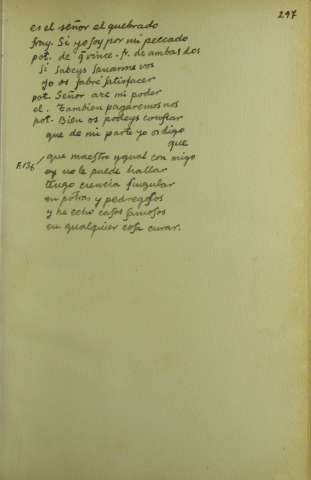 297
es el señor el quebrado
fray. Si yo soy por mi peccado
pot. de q̃ vince. fr. de ambas dos
si sabeys sanarme vos
yo os sabré satisfacer
pot. Señor are mi poder
el. tambien pagaremos nos
pot. Bien os podeys confiar
que de mi parte yo os digo
que
F.136 / que maestro ygual con migo
oy no le puede hallar
tengo ciencia singular
en potras y pedregosos
y he echo casos famosos
en qualquier cosa curar.